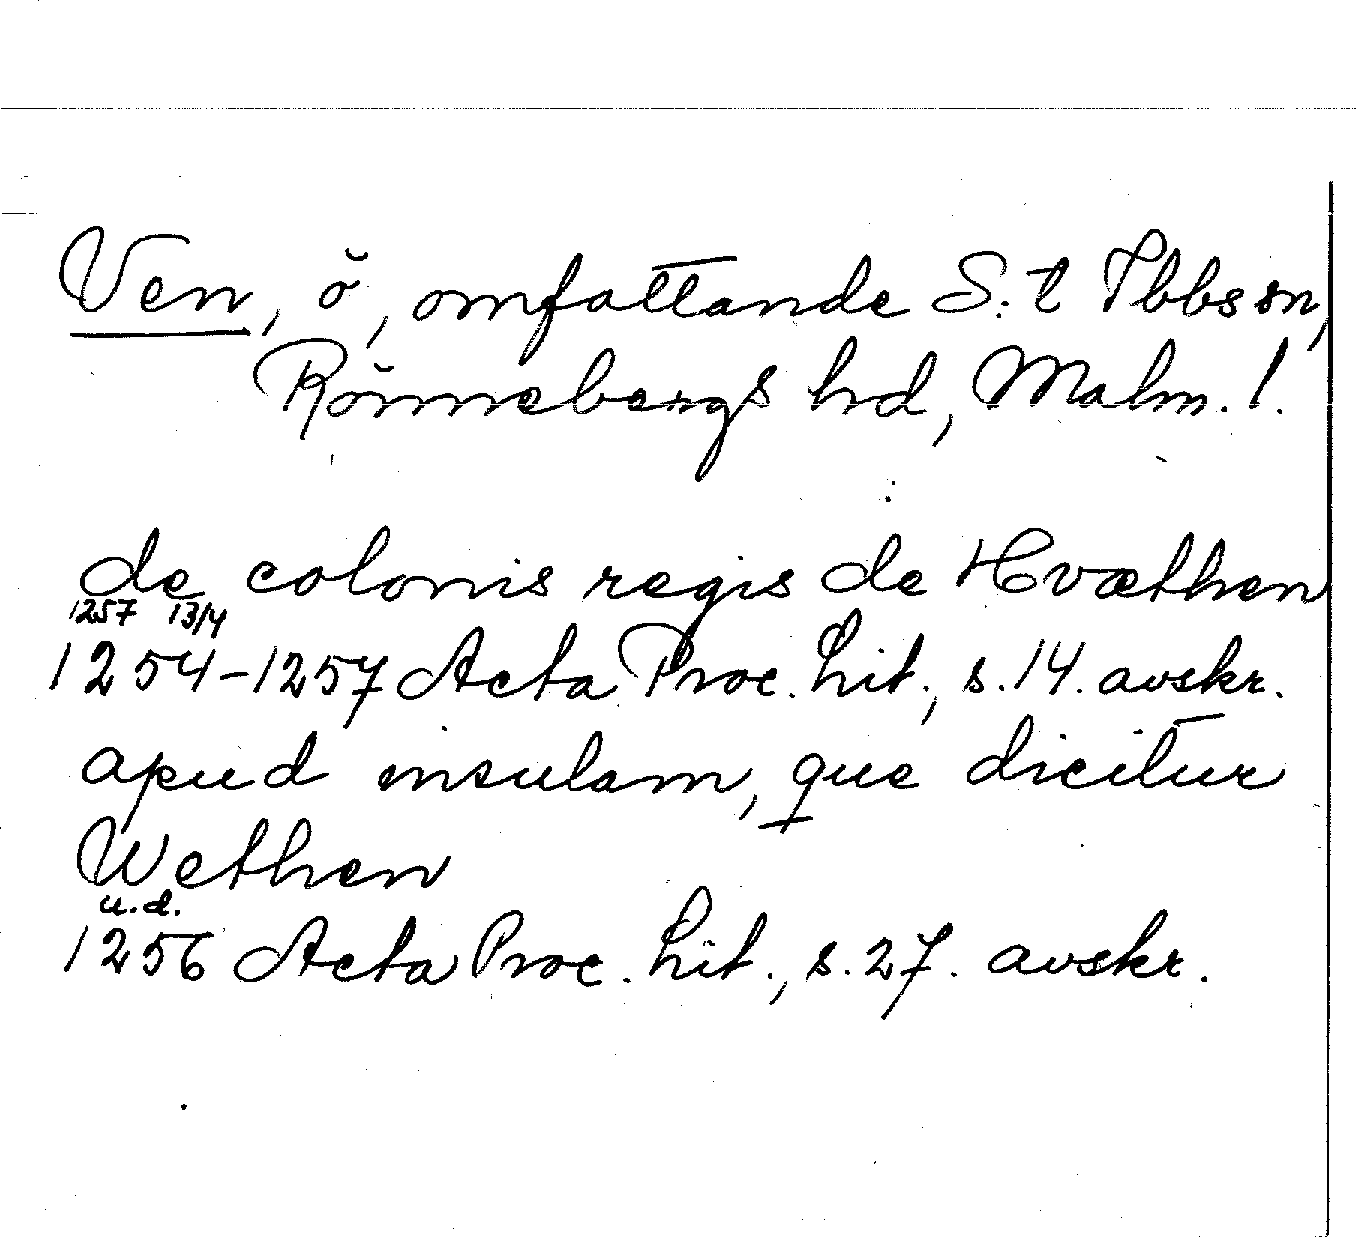 Ven, ö, omfattande S:t Ibbs sn,
Rönnebergs hd, Malm. l.
de colonis regis de Hvæthen
1257 13/4
1254-1257 Acta Proc. Lit., s. 14. avskr.
apud insulam, que dicitur
Wethen
u.d.
1256 Acta Proc. Lit., s. 27. avskr.